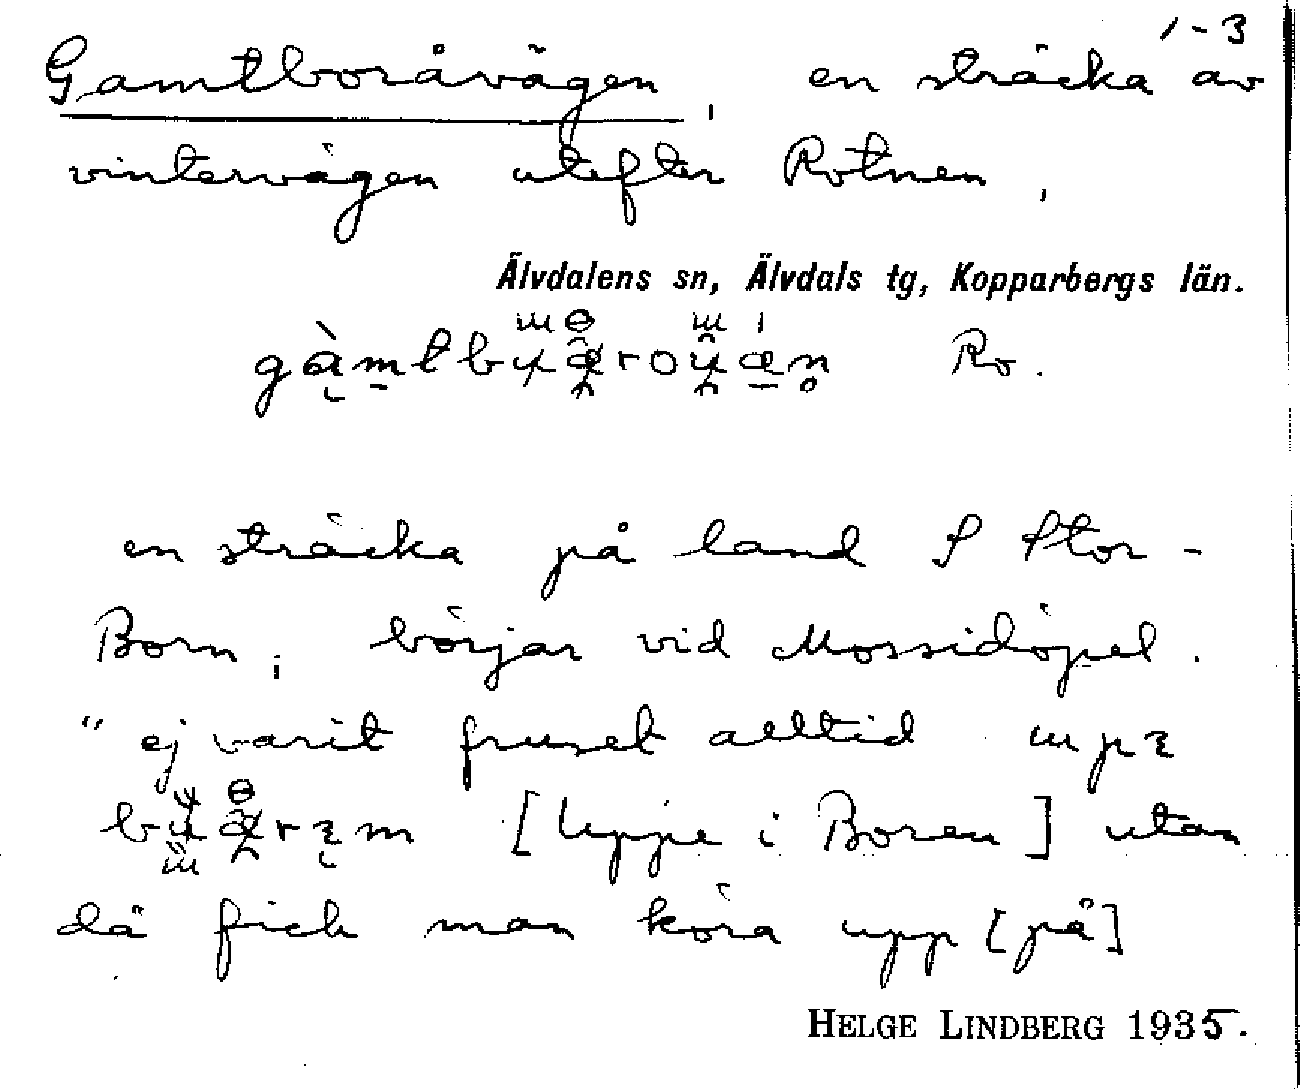 1-3
Gamtboråvägen, en sträcka av
vintervägen utefter Rotnen,
Älvdalens sn, Älvdals tg, Kopparbergs län.
Ro.
en sträcka på land S Stor-
Born, börjar vid Mossidöpel.
"ej varit fruset alltid
[uppe i Boren] utan
då fick man köra upp [på]
HELGE LINDBERG 1935.